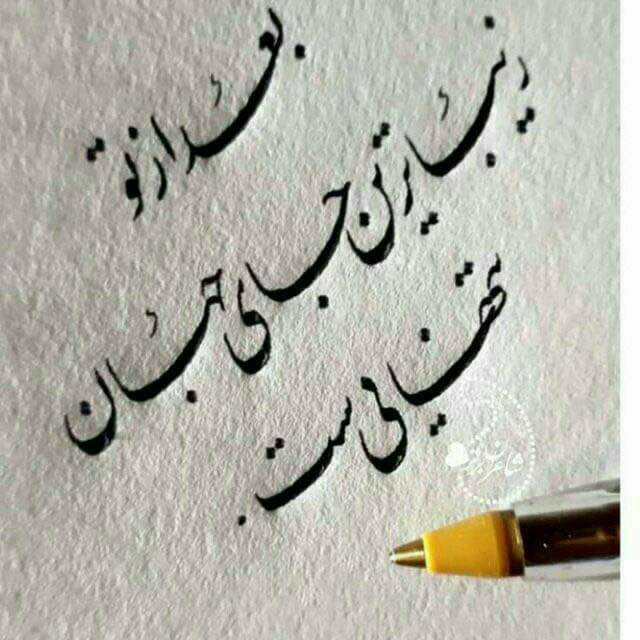 بعد از تو
زیباترین جای جهان
تنهایی ست.